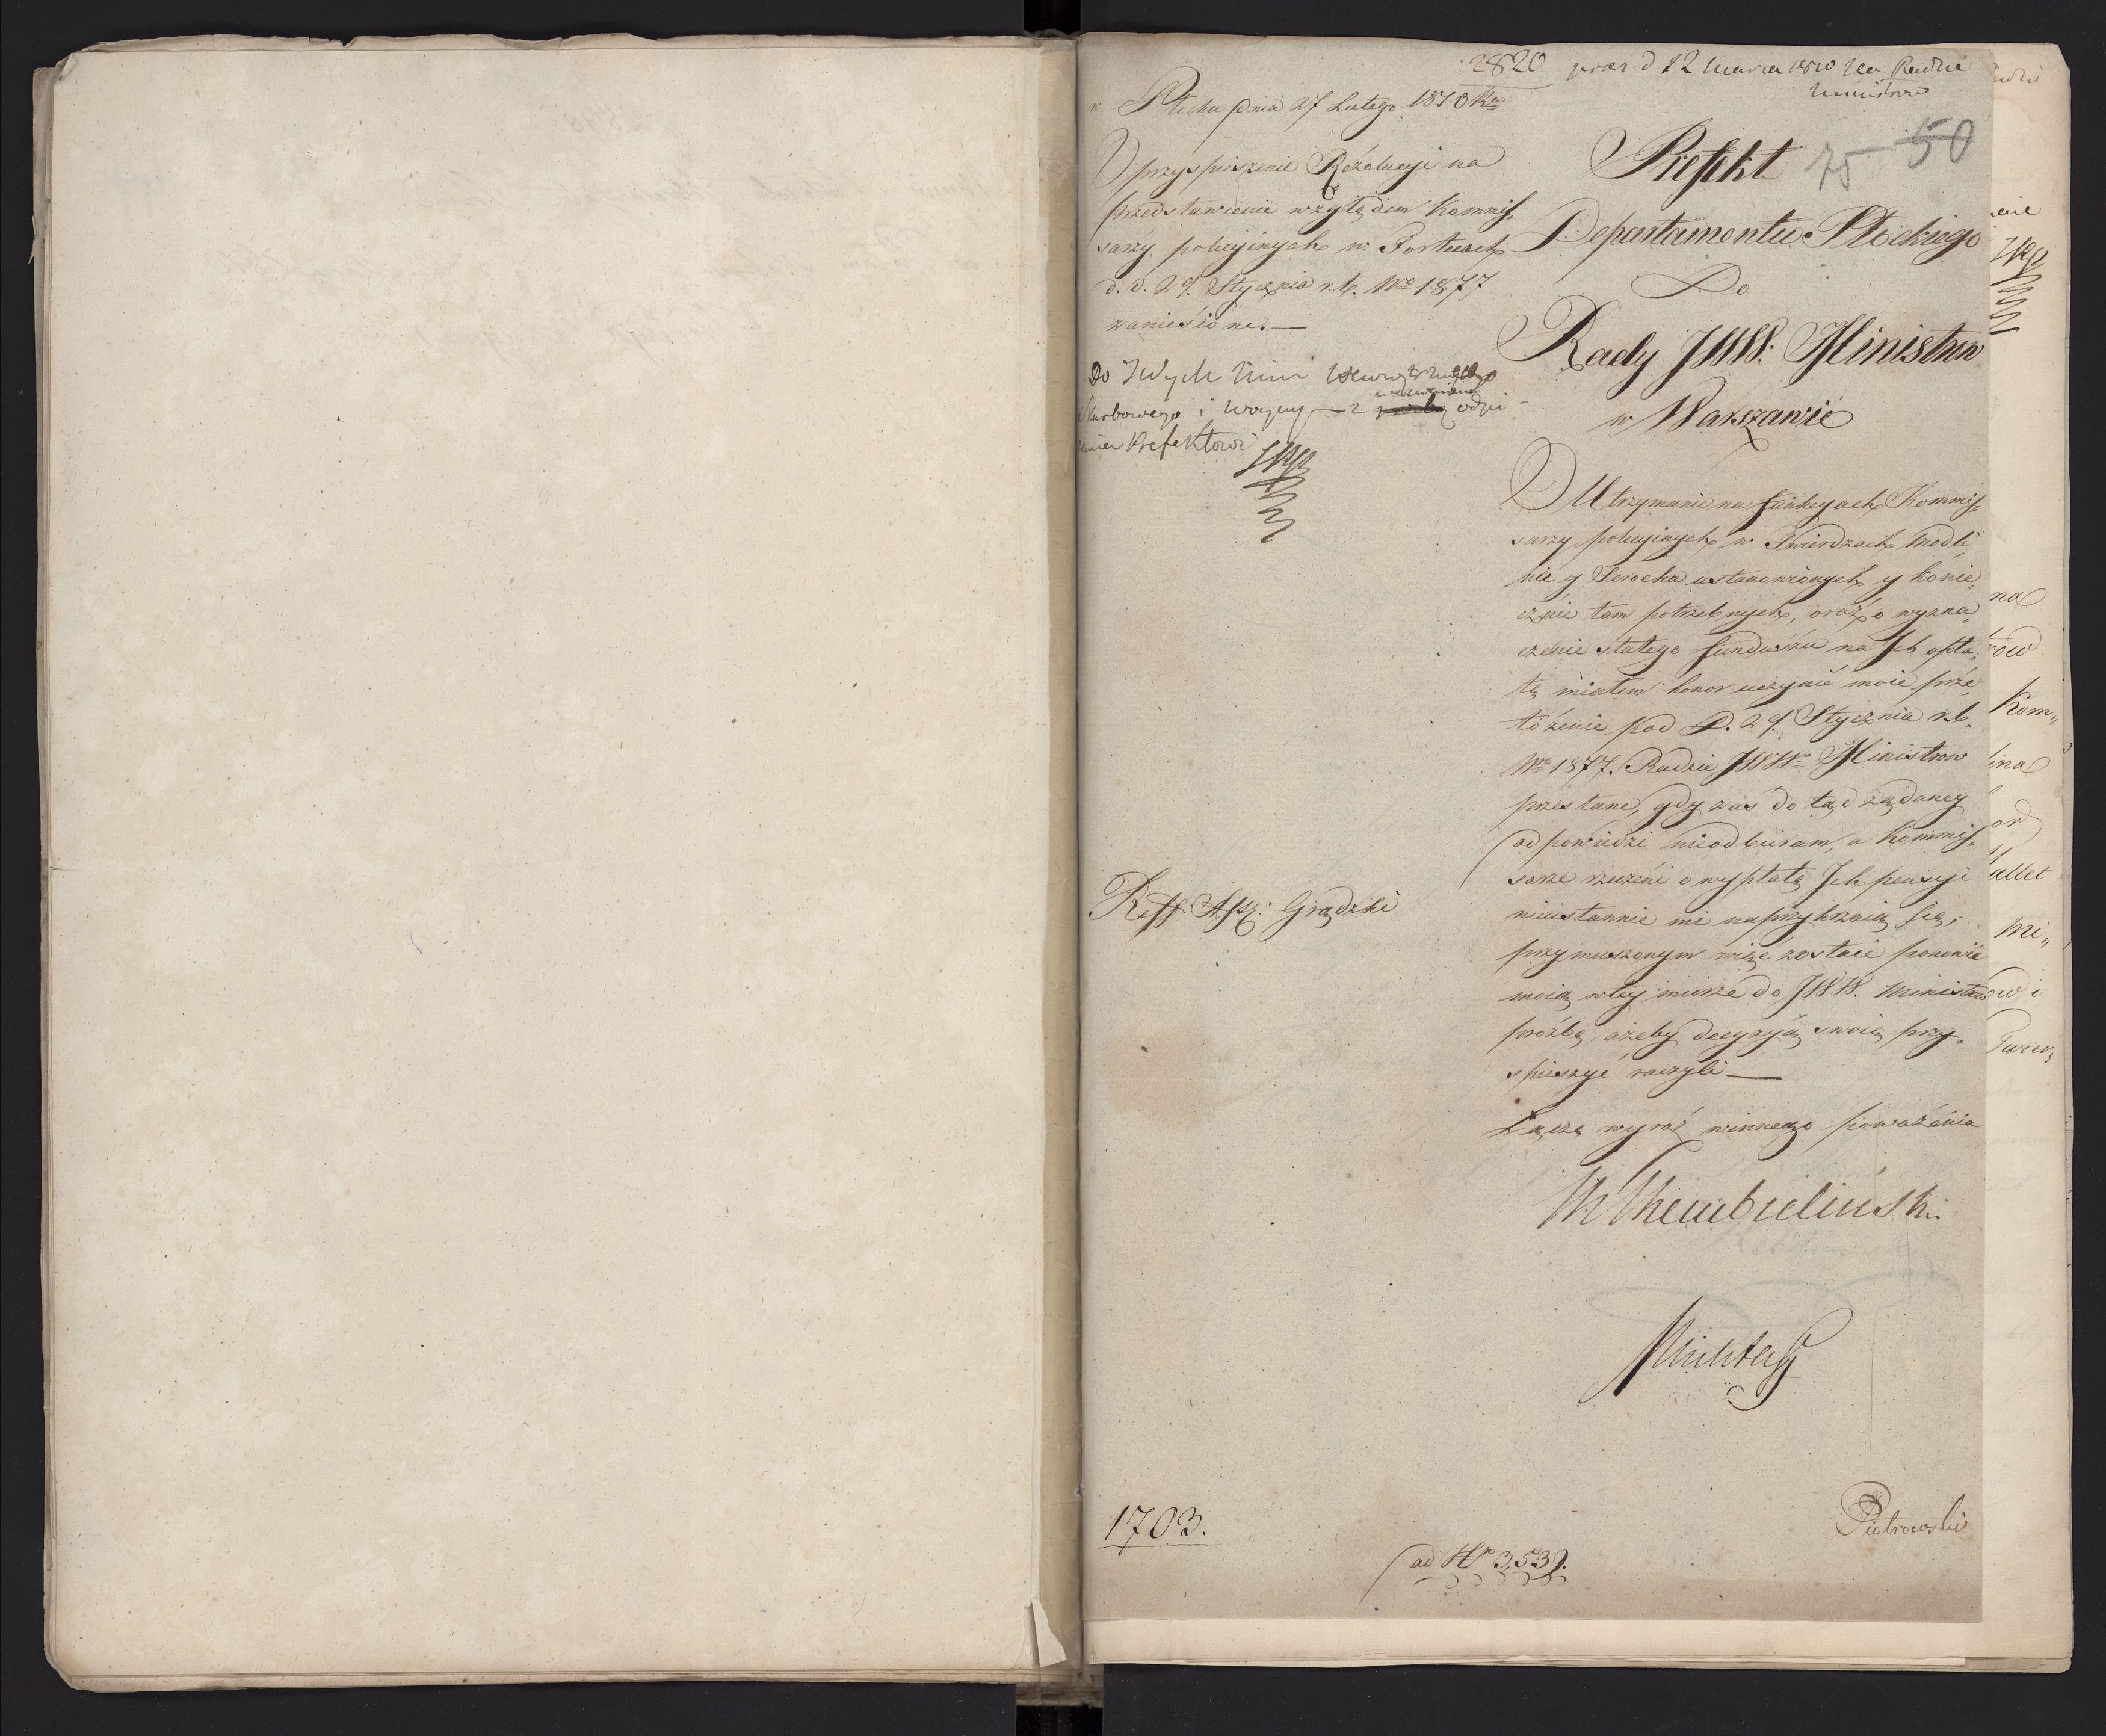 2820 praes d 12 marca 1810 na Radzie
Ministrow
w Płocku Dnia 27 Lutego 1810 Ru
O przyspieszenie Rezolucyi na
przedstawienie względem Kommis„
sarzy policyinych w Fortecach
d. d. 29. Stycznia r. b. No 1877
zaniesione. —
Do JWych Minn Wewnętrznego
Skarbowego i Woyny — z wezwaniem odpi-
sania Prefektowi
Reff: Ass: Grądzki
1703.
75 50
Prefekt
Departamentu Płockiego
Do
Rady JWW. Ministrow
w Warszawie
O Utrzymanie na funkcyach Kommis„
sarzy policyinych w Twierdzach Modli„
nie y Serocku ustanowionych y konie„
cznie tam potrzebnych, oraz o wyzna„
czenie stałego funduszu na Jch opła„
tę miałem honor uczynić moie prze„
łożenie pod D. 29. Stycznia r. b.
No 1877. Radzie JWW. Ministrow
przesłane, gdy zaś do tąd żądaney
odpowiedzi nieodbieram, a Kommis„
sarze rzeczeni o wypłatę Jch pensyi
nieustannie mi naprzykrzaią się,
przymuszonym więc zostaię ponowić
moią w tey mierze do JWW. Ministrow
prozbę, ażeby decyzyą swoią przy„
spieszyć raczyli —
Łączę wyraz winnego poważania
Rembieliński
Piotrowski
ad No 3,539.
na
Kom„
na
Mi„
Twier„